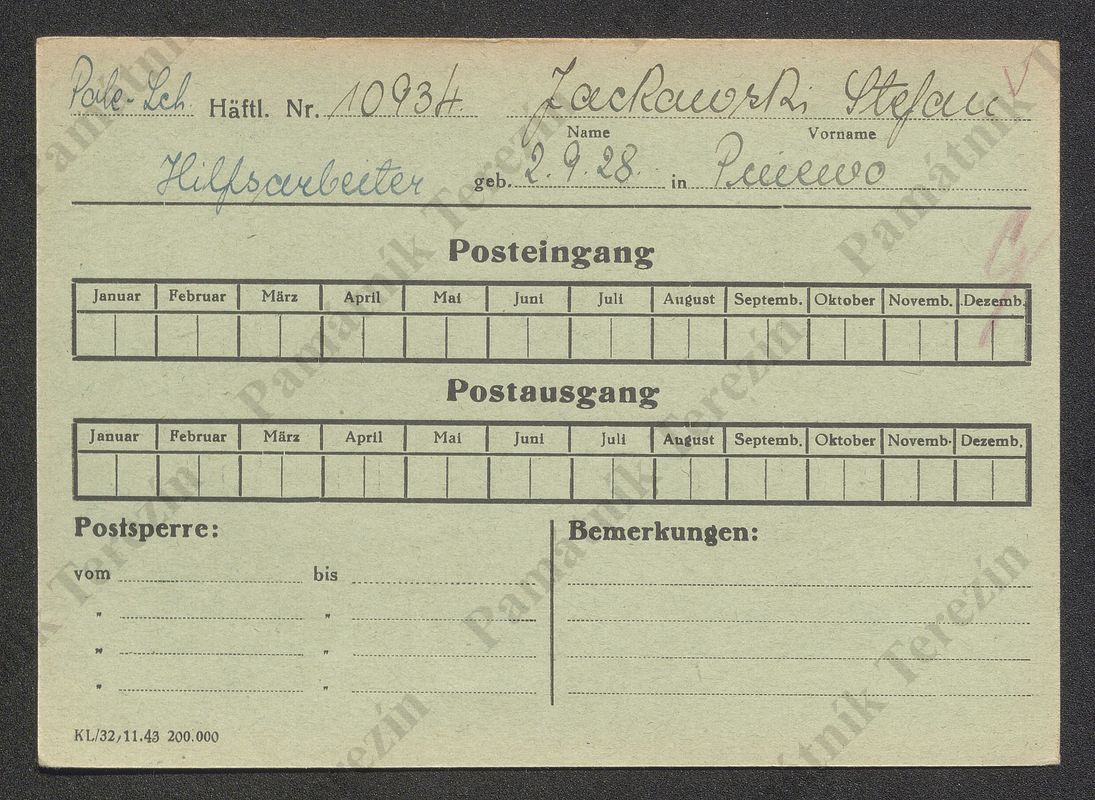 Pole-Sch. Häftl. Nr. 10934 Zackawski Stefan
Name Vorname
Hilfsarbeiter geb. 2.9.28. in
Posteingang
Januar Februar März April Mai Juni Juli August Septemb. Oktober Novemb. Dezemb.
Postausgang
Januar Februar März April Mai Juni Juli August Septemb. Oktober Novemb. Dezemb.
Postsperre: Bemerkungen:
vom bis
" "
" "
" "
KL/32, 11.43 200.000
Památník Terezín